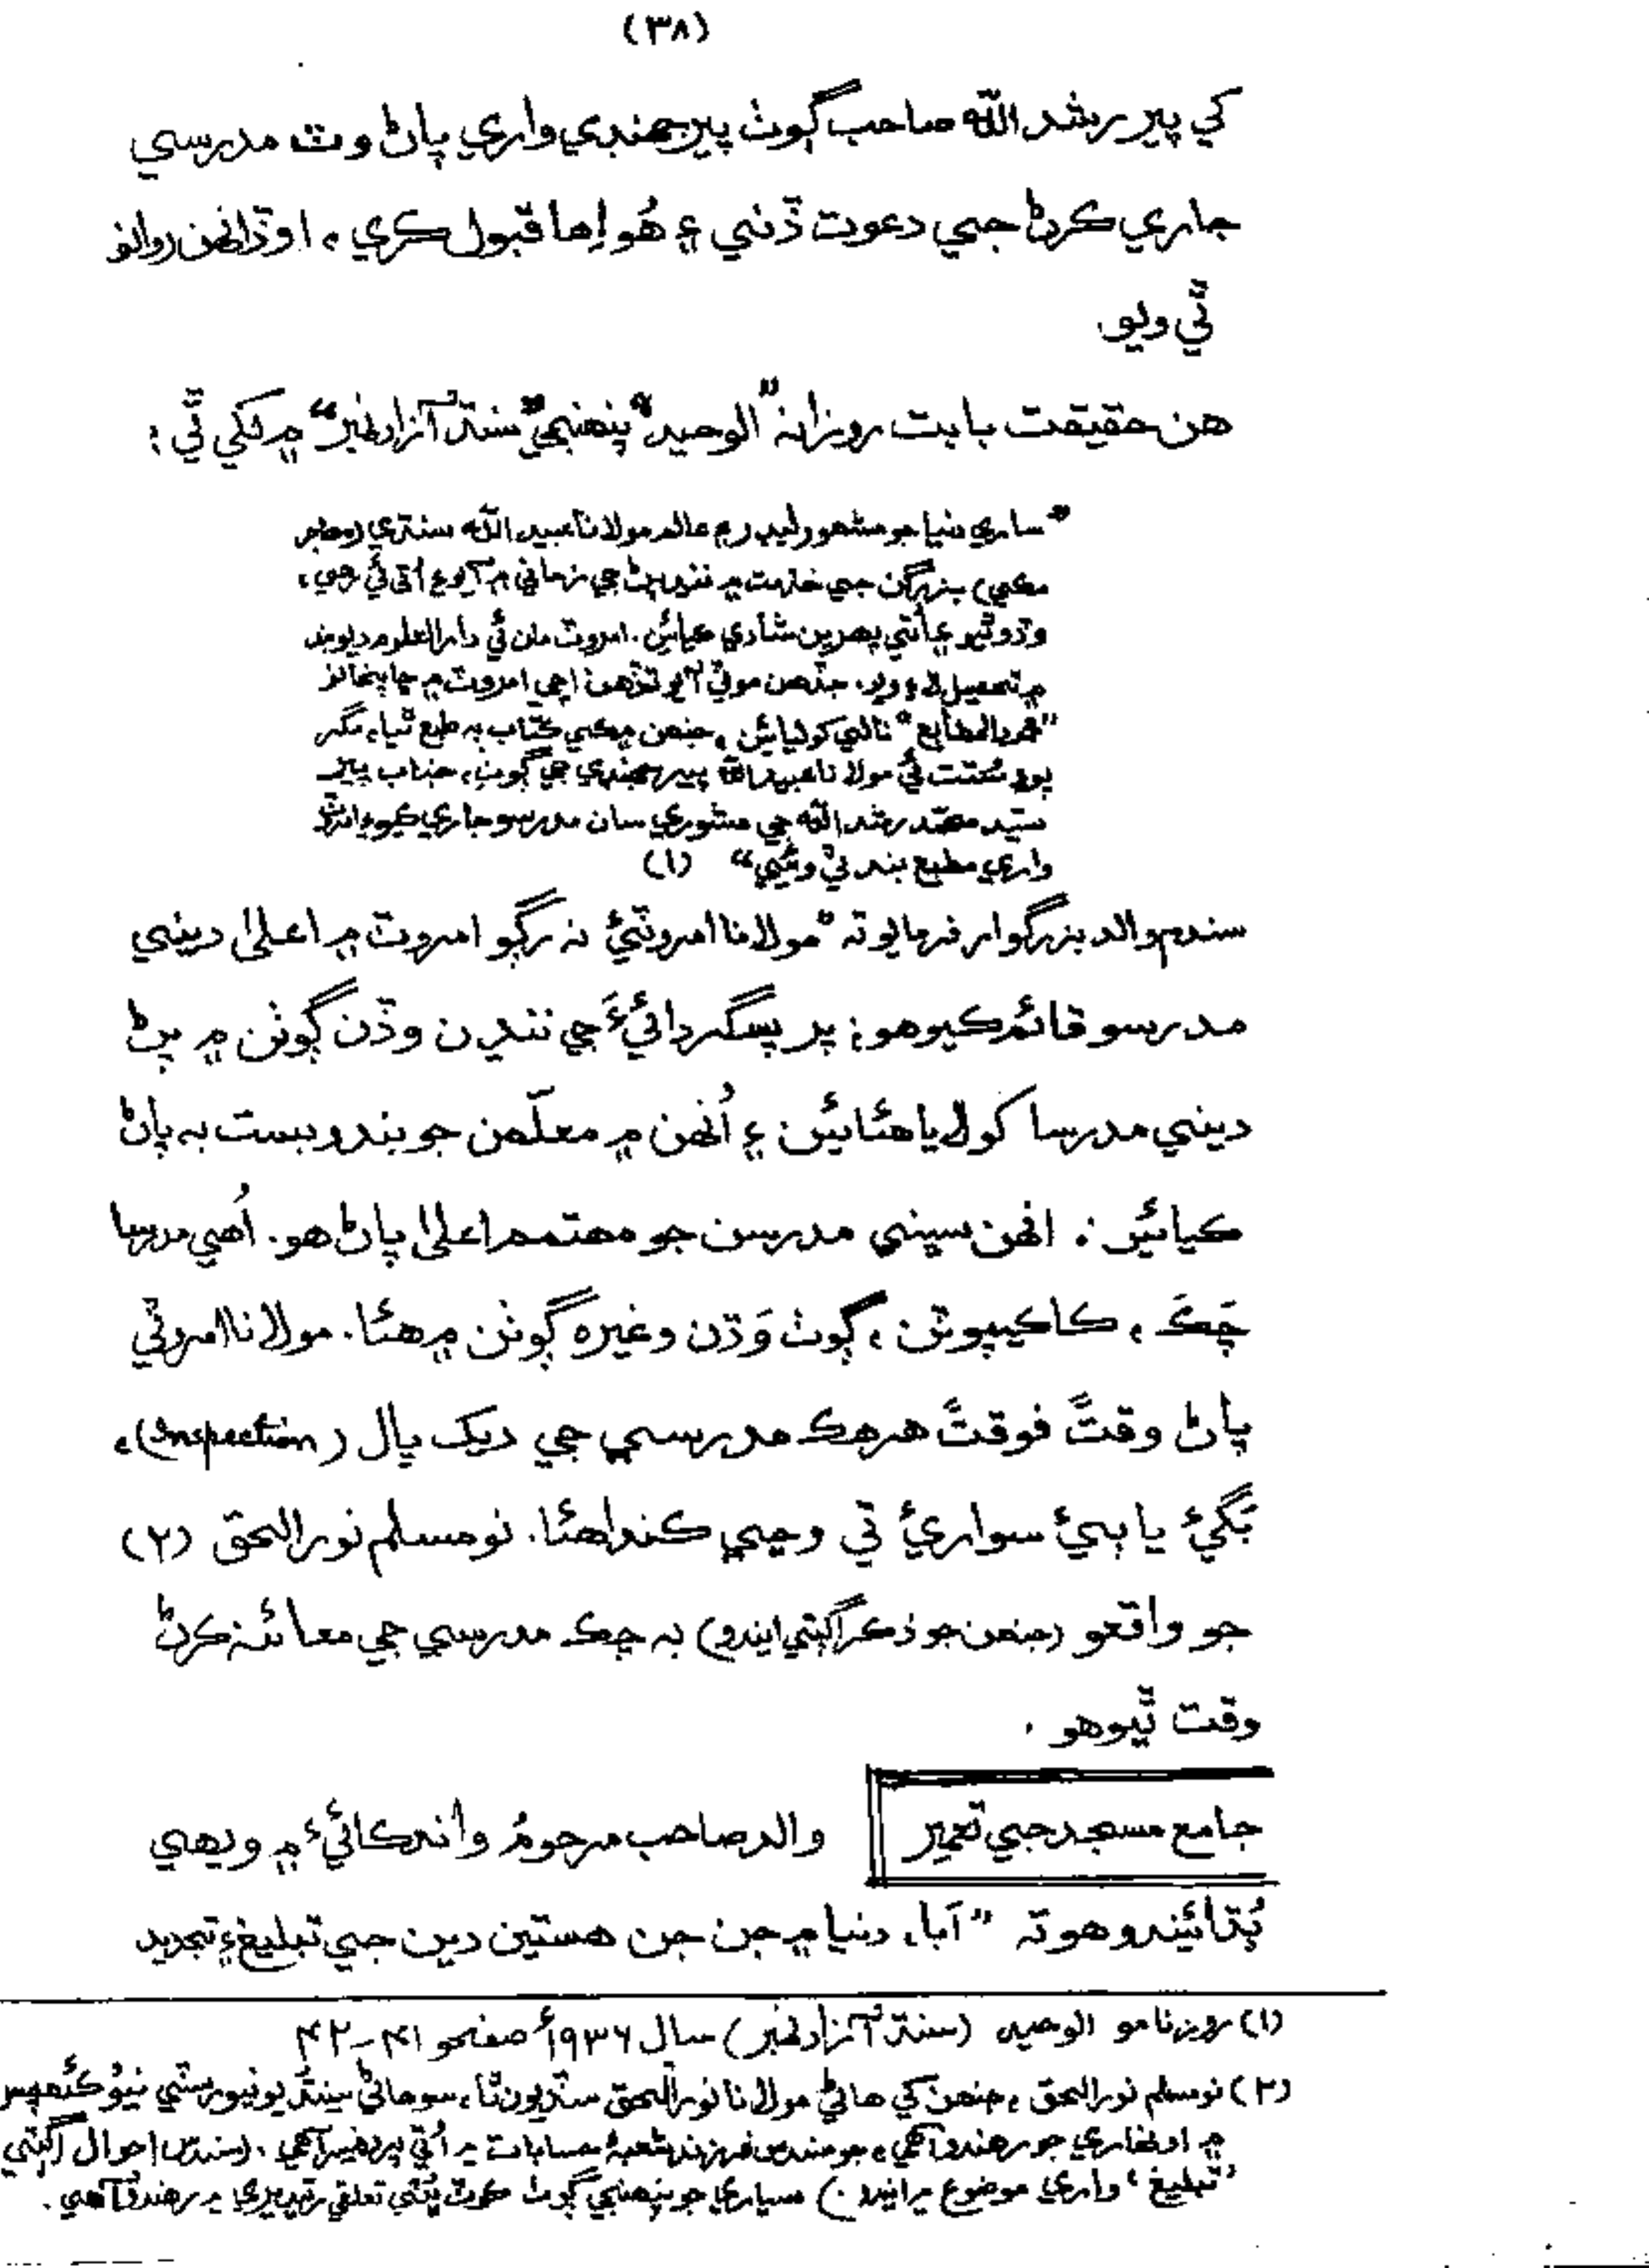 (۳۸)
کي پير رشد الله صاحب ڳوٺ پير جهنڊي واري پاڻ وٽ مدرسي
جاري ڪرڻ جي دعوت ڏني ۽ هُو اِها قبول ڪري، اوڏانهن روانو
ٿي ويو.
هن حقيقت بابت روزانه "الوحيد" پنهنجي "سنڌ آزاد نمبر" ۾ لکي ٿي:
"ساري دنيا جو مشهور ليڊر ۽ عالم مولانا عبيد الله سنڌي (مهاجر
مڪي) بزرگن جي خدمت ۾ ننڍپڻ جي زماني ۾ آيو ۽ اتي ئي رهي،
وڏو ٿيو ۽ اُتي پهرين شادي ڪيائين. امروٽ مان ئي دارالعلوم ديوبند
۾ تحصيل لاءِ ويو، جڏهن موٽي آيو تڏهن اچي امروٽ ۾ ڇاپخانو
"محمود المطابع" نالي کوليائين، جنهن ۾ ڪي ڪتاب به طبع ٿيا، مگر
پوءِ مولانا عبيد الله پير جهنڊي جي ڳوٺ، جناب پير
سيد محمد رشد الله جي مشوري سان مدرسو جاري ڪيو ۽ امروٽ
واري مطبع بند ٿي ويئي" (۱)
سندم والد بزرگوار فرمايو ته "مولانا امروٽيءَ نه رڳو امروٽ ۾ اعليٰ ديني
مدرسو قائم ڪيو هو؛ پر پسگردائيءَ جي ننڍن وڏن ڳوٺن ۾ پڻ
ديني مدرسا کوليا هئائين ۽ اُنهن ۾ معلّمن جو بندوبست به پاڻ
ڪيائين: انهن سڀني مدرسن جو مهتمم اعليٰ پاڻ هو. اُهي مدرسا
چَڪَ، ڪاڪيپوٽن، ڳوٺ وَڏن وغيره ڳوٺن ۾ هئا. مولانا امروٽي
پاڻ وقتاً فوقتاً هرهڪ مدرسي جي ديک ڀال (Inspection)،
بَگيءَ يا ٻيءَ سواريءَ تي وڃي ڪندا هئا. نومسلم نورالحق (۲)
جو واقعو (جنهن جو ذڪر اڳتي ايندو) به چڪ مدرسي جي معائنہ ڪرڻ
وقت ٿيو هو.
جامع مسجد جي تعمير
والد صاحب مرحومُ واندڪائيءَ ۾ ويهي
ٻُڌائيندو هو ته "اَبا، دنيا ۾ جن جن هستين دين جي تبليغ ۽ تجديد
(۱) روزنامو الوحيد (سنڌ آزاد نمبر) سال ۱۹۳۶ع صفحو ۴۱-۴۲
(۲) نومسلم نورالحق، جنهن کي هاڻي مولانا نورالحق سڏيون ٿا، سو هاڻي سينڌ يونيورسٽي نيو ڪئمپس
۾ اوطاري جو رهندو آهي، جو سندس فرزند شعبهٔ حسابات ۾ اُتي پروفيسر آهي. (سندس احوال اڳتي
'تبليغ' واري موضوع ۾ ايندو.) سياري جو پنهنجي ڳوٺ تعلقي رتيديري ۾ رهندو آهي.